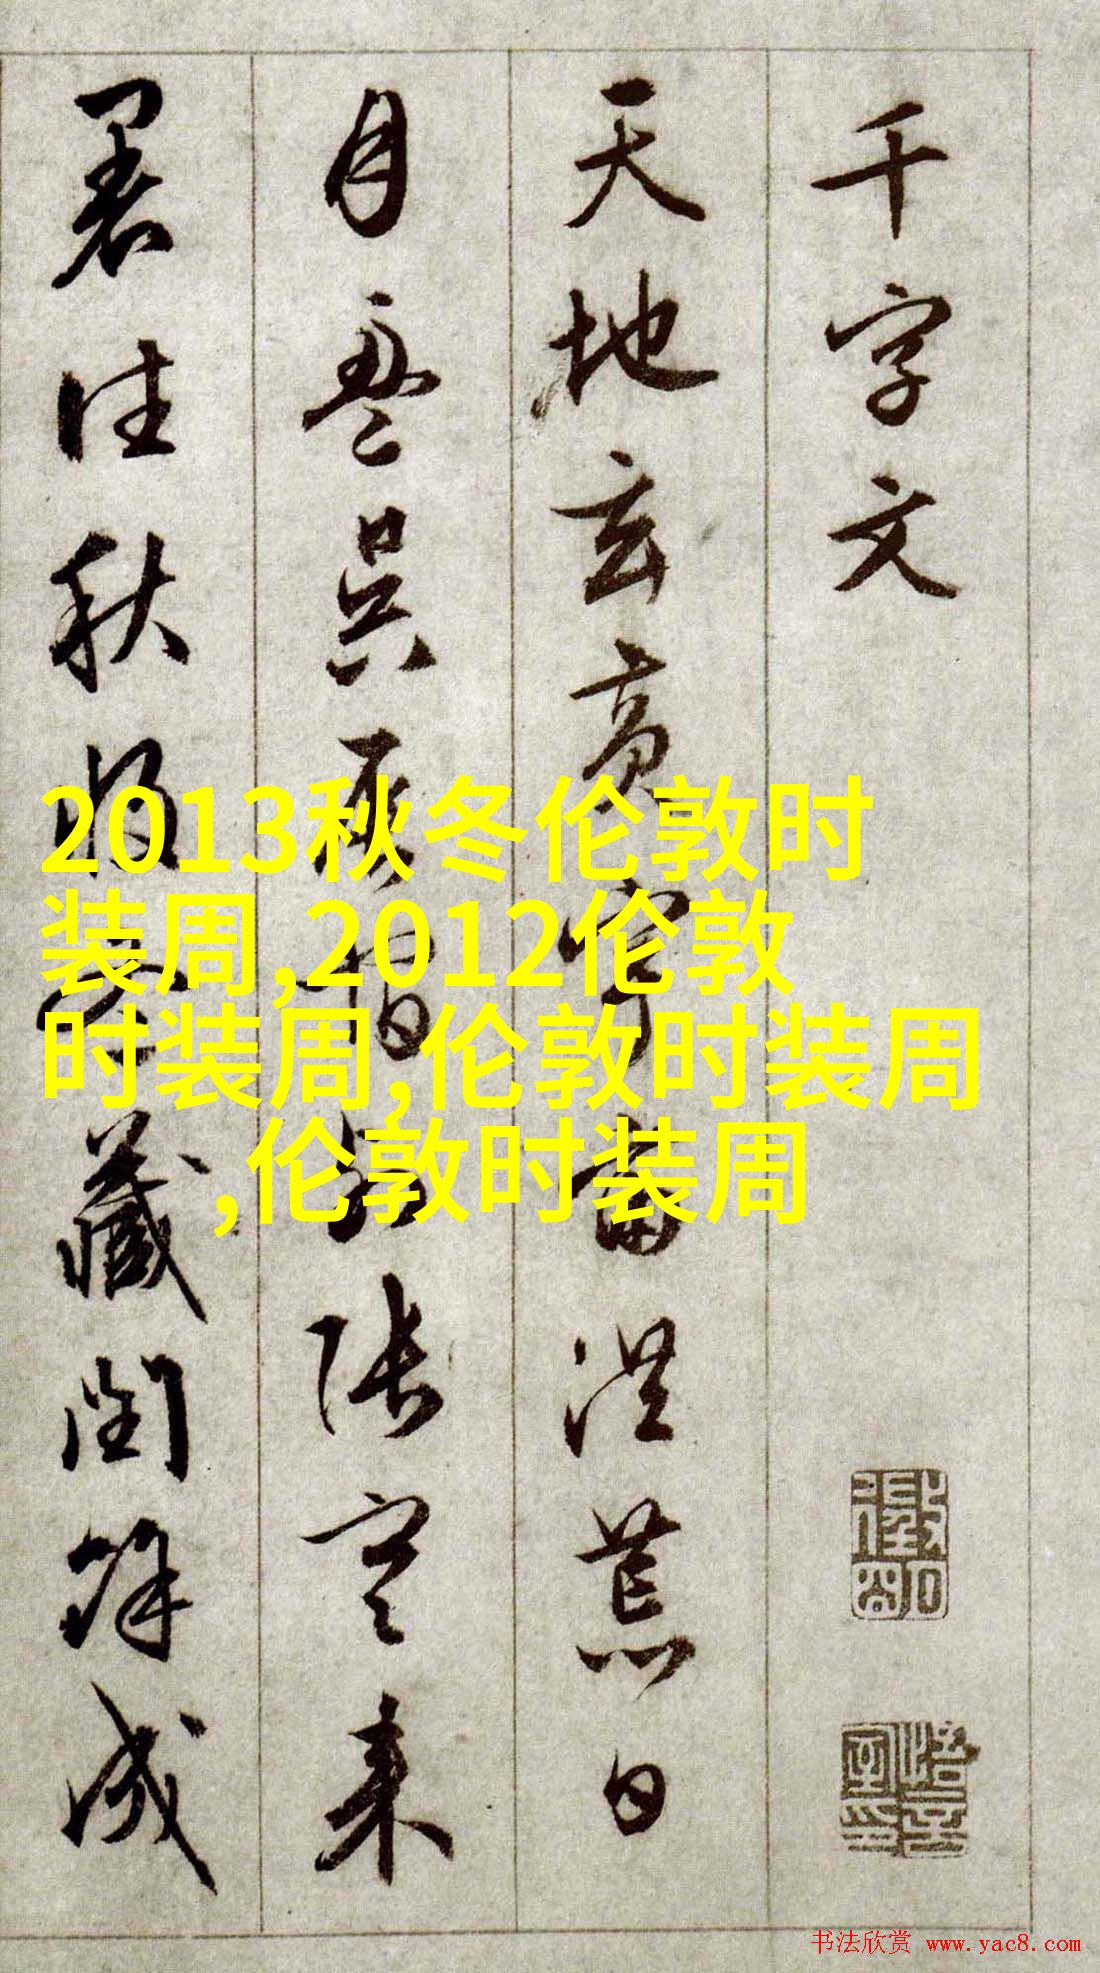 千字文
天地玄黄宇宙洪荒日
月盈昃辰宿列張寒来
暑往秋收冬藏閏餘成
2013秋冬伦敦时
装周,2012伦敦
时装周,伦敦时装周
,伦敦时装周
书法欣赏 www.yac8.com